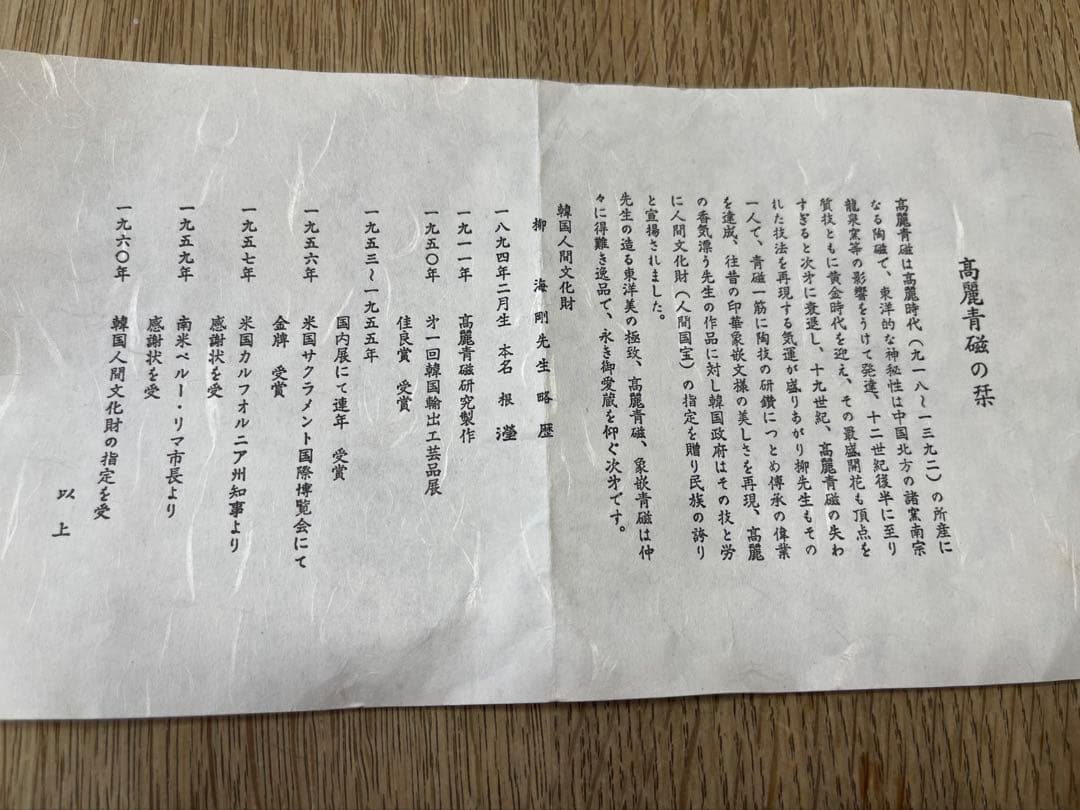 高麗青磁の栞
高麗青磁は高麗時代(九一八〜一三九二)の所産に
なる陶磁で、東洋的な神秘性は中国北方の諸窯南宗
龍泉窯等の影響をうけて発達、十二世紀後半に至り
質技ともに黄金時代を迎え、その最盛開花も頂点を
すぎると次才に衰退し、十九世紀、高麗青磁の失わ
れた技法を再現する気運が盛りあがり柳先生もその
一人で、青磁一筋に陶技の研鑽につとめ傳承の偉業
を達成、往昔の印華象嵌文様の美しさを再現、高麗
の香気漂う先生の作品に対し韓国政府はその技と労
に人間文化財(人間国宝)の指定を贈り民族の誇り
と宣揚されました。
先生の造る東洋美の極致、高麗青磁、象嵌青磁は仲
々に得難き逸品で、永き御愛蔵を仰ぐ次才です。
韓国人間文化財
柳 海 剛 先 生 略 歴
一八九四年二月生 本名 根 瀅
一九一一年 高麗青磁研究製作
一九五〇年 才一回韓国輸出工芸品展
佳良賞 受賞
一九五三〜一九五五年
国内展にて連年 受賞
一九五六年 米国サクラメント国際博覧会にて
金牌 受賞
一九五七年 米国カルフオルニア州知事より
感謝状を受
一九五九年 南米ペルー・リマ市長より
感謝状を受
一九六〇年 韓国人間文化財の指定を受
以 上